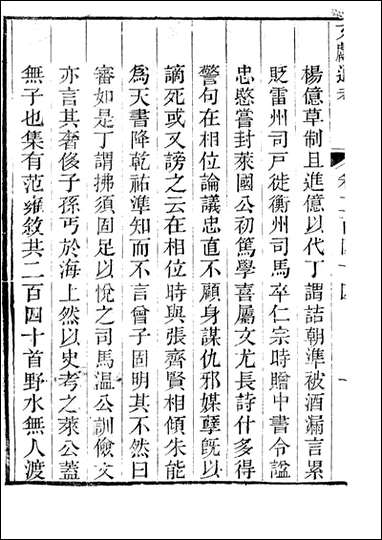 文獻通考 卷二百四十四 一
楊億草制且進億以代丁謂詰朝準被酒漏言累
貶雷州司戸徙衡州司馬卒仁宗時贈中書令諡
忠愍嘗封萊國公初篤學喜屬文尤長詩什多得
警句在相位論議忠直不顧身謀仇邪媒孽旣以
謫死或又謗之云在相位時與張齊賢相傾朱能
為天書降乾祐準知而不言曾子固明其不然曰
審如是丁謂拂須固足以悅之司馬温公訓儉文
亦言其奢侈子孫丐於海上然以史考之萊公蓋
無子也集有范雍敘其二百四十首野水無人渡